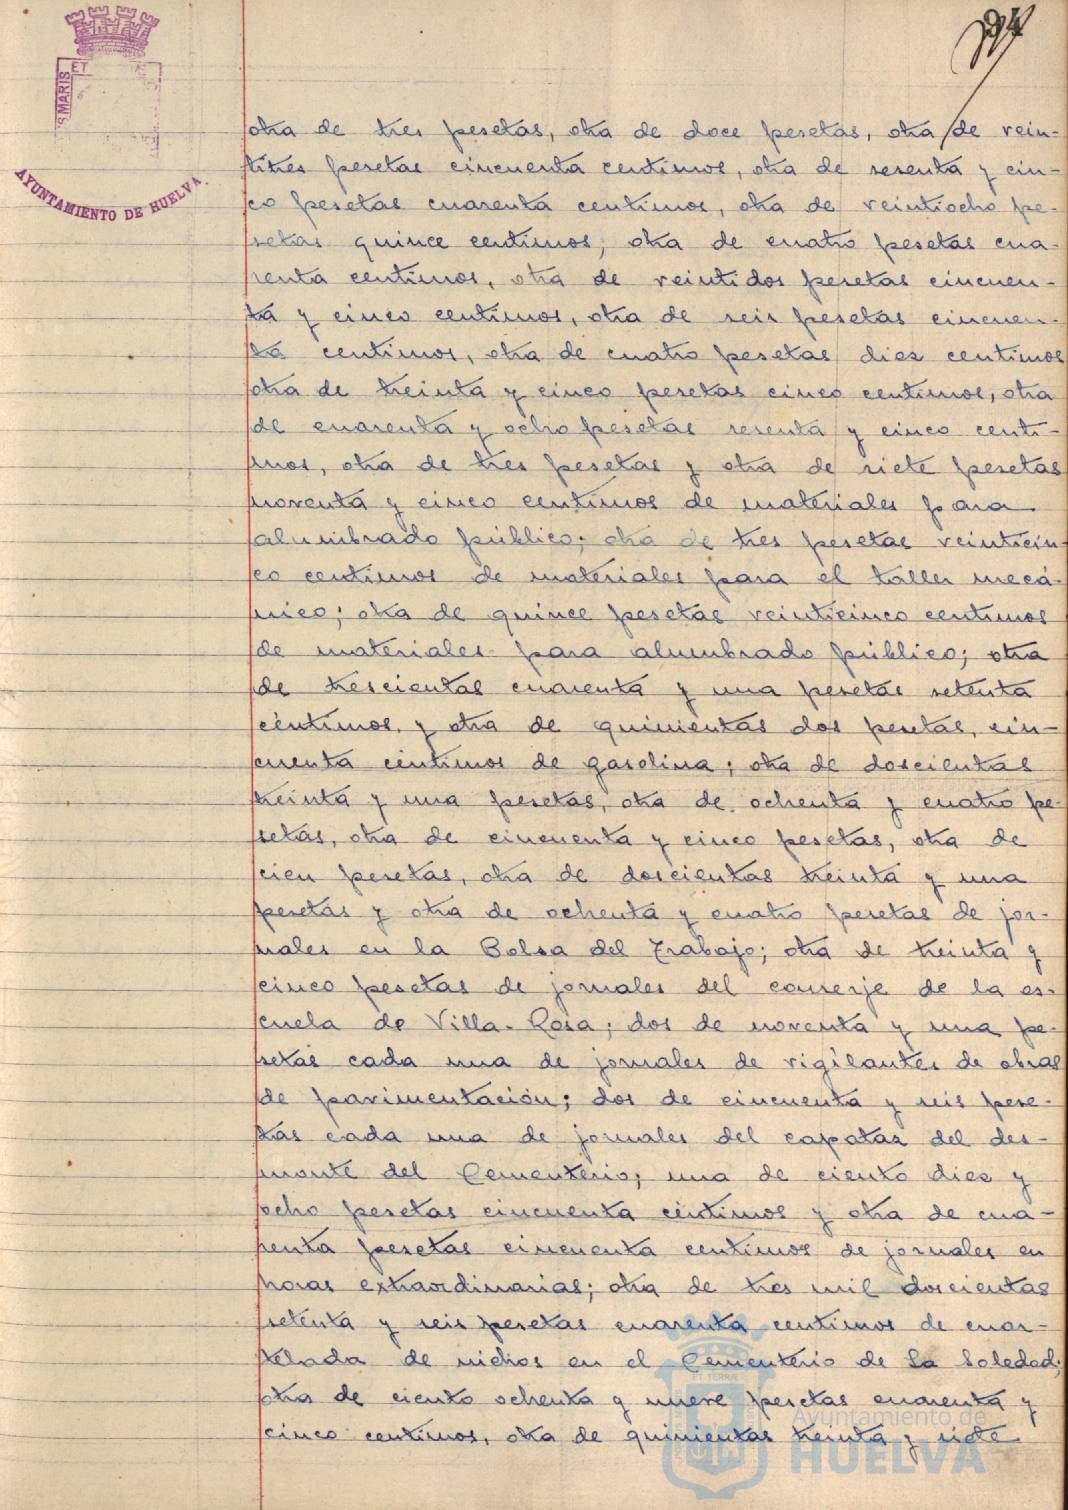 94
ET
S MARIS
AYUNTAMIENTO DE HUELVA.
otra de tres pesetas, otra de doce pesetas, otra de vein-
titres pesetas cincuenta centimos, otra de sesenta y cin-
co pesetas cuarenta centimos, otra de veintiocho pe-
setas quince centimos, otra de cuatro pesetas cua-
renta centimos, otra de veintidos pesetas cincuen-
ta y cinco centimos, otra de seis pesetas cincuen-
ta centimos, otra de cuatro pesetas diez centimos
otra de treinta y cinco pesetas cinco centimos, otra
de cuarenta y ocho pesetas sesenta y cinco centi-
mos, otra de tres pesetas y otra de siete pesetas
noventa y cinco centimos de materiales para
alumbrado público; otra de tres pesetas veinticin-
co centimos de materiales para el taller mecá-
nico; otra de quince pesetas veinticinco centimos
de materiales para alumbrado público; otra
de trescientas cuarenta y una pesetas setenta
céntimos, y otra de quinientas dos pesetas, cin-
cuenta centimos de gasolina; otra de doscientas
treinta y una pesetas, otra de ochenta y cuatro pe-
setas, otra de cincuenta y cinco pesetas, otra de
cien pesetas, otra de doscientas treinta y una
pesetas y otra de ochenta y cuatro pesetas de jor-
nales en la Bolsa del Trabajo; otra de treinta y
cinco pesetas de jornales del conserje de la es-
cuela de Villa-Rosa; dos de noventa y una pe-
setas cada una de jornales de vigilantes de obras
de pavimentación; dos de cincuenta y seis pese-
tas cada una de jornales del capataz del des-
monte del Cementerio; una de ciento diez y
ocho pesetas cincuenta centimos y otra de cua-
renta pesetas cincuenta centimos de jornales en
horas extraordinarias; otra de tres mil doscientas
setenta y seis pesetas cuarenta centimos de cuar-
telada de nichos en el Cementerio de la Soledad;
otra de ciento ochenta y nueve pesetas cuarenta y
cinco centimos, otra de quinientas treinta y siete
ET TERRÆ
Ayuntamiento de
HUELVA